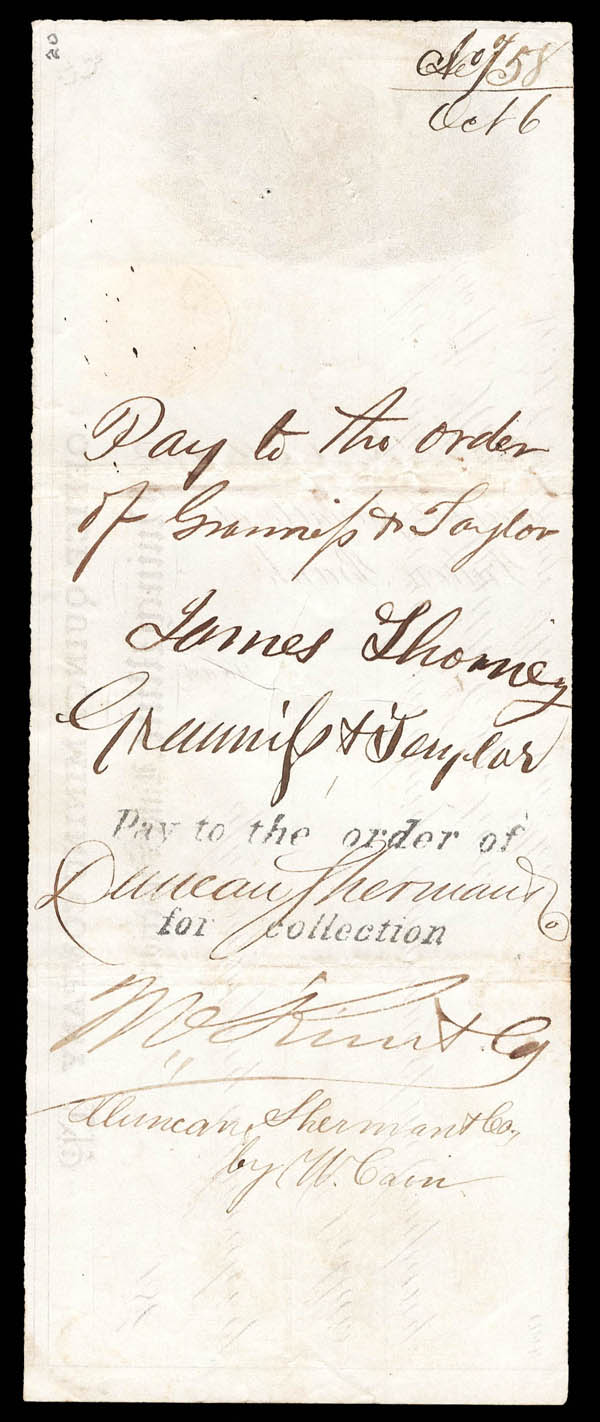 No 758
Oct 6
Pay to the order
of Granniss & Taylor
James Thorney
Granniss & Taylor
Pay to the order of
Duncan Sherman & Co
for collection
McKim & Co
Duncan, Sherman & Co,
by W. Cain